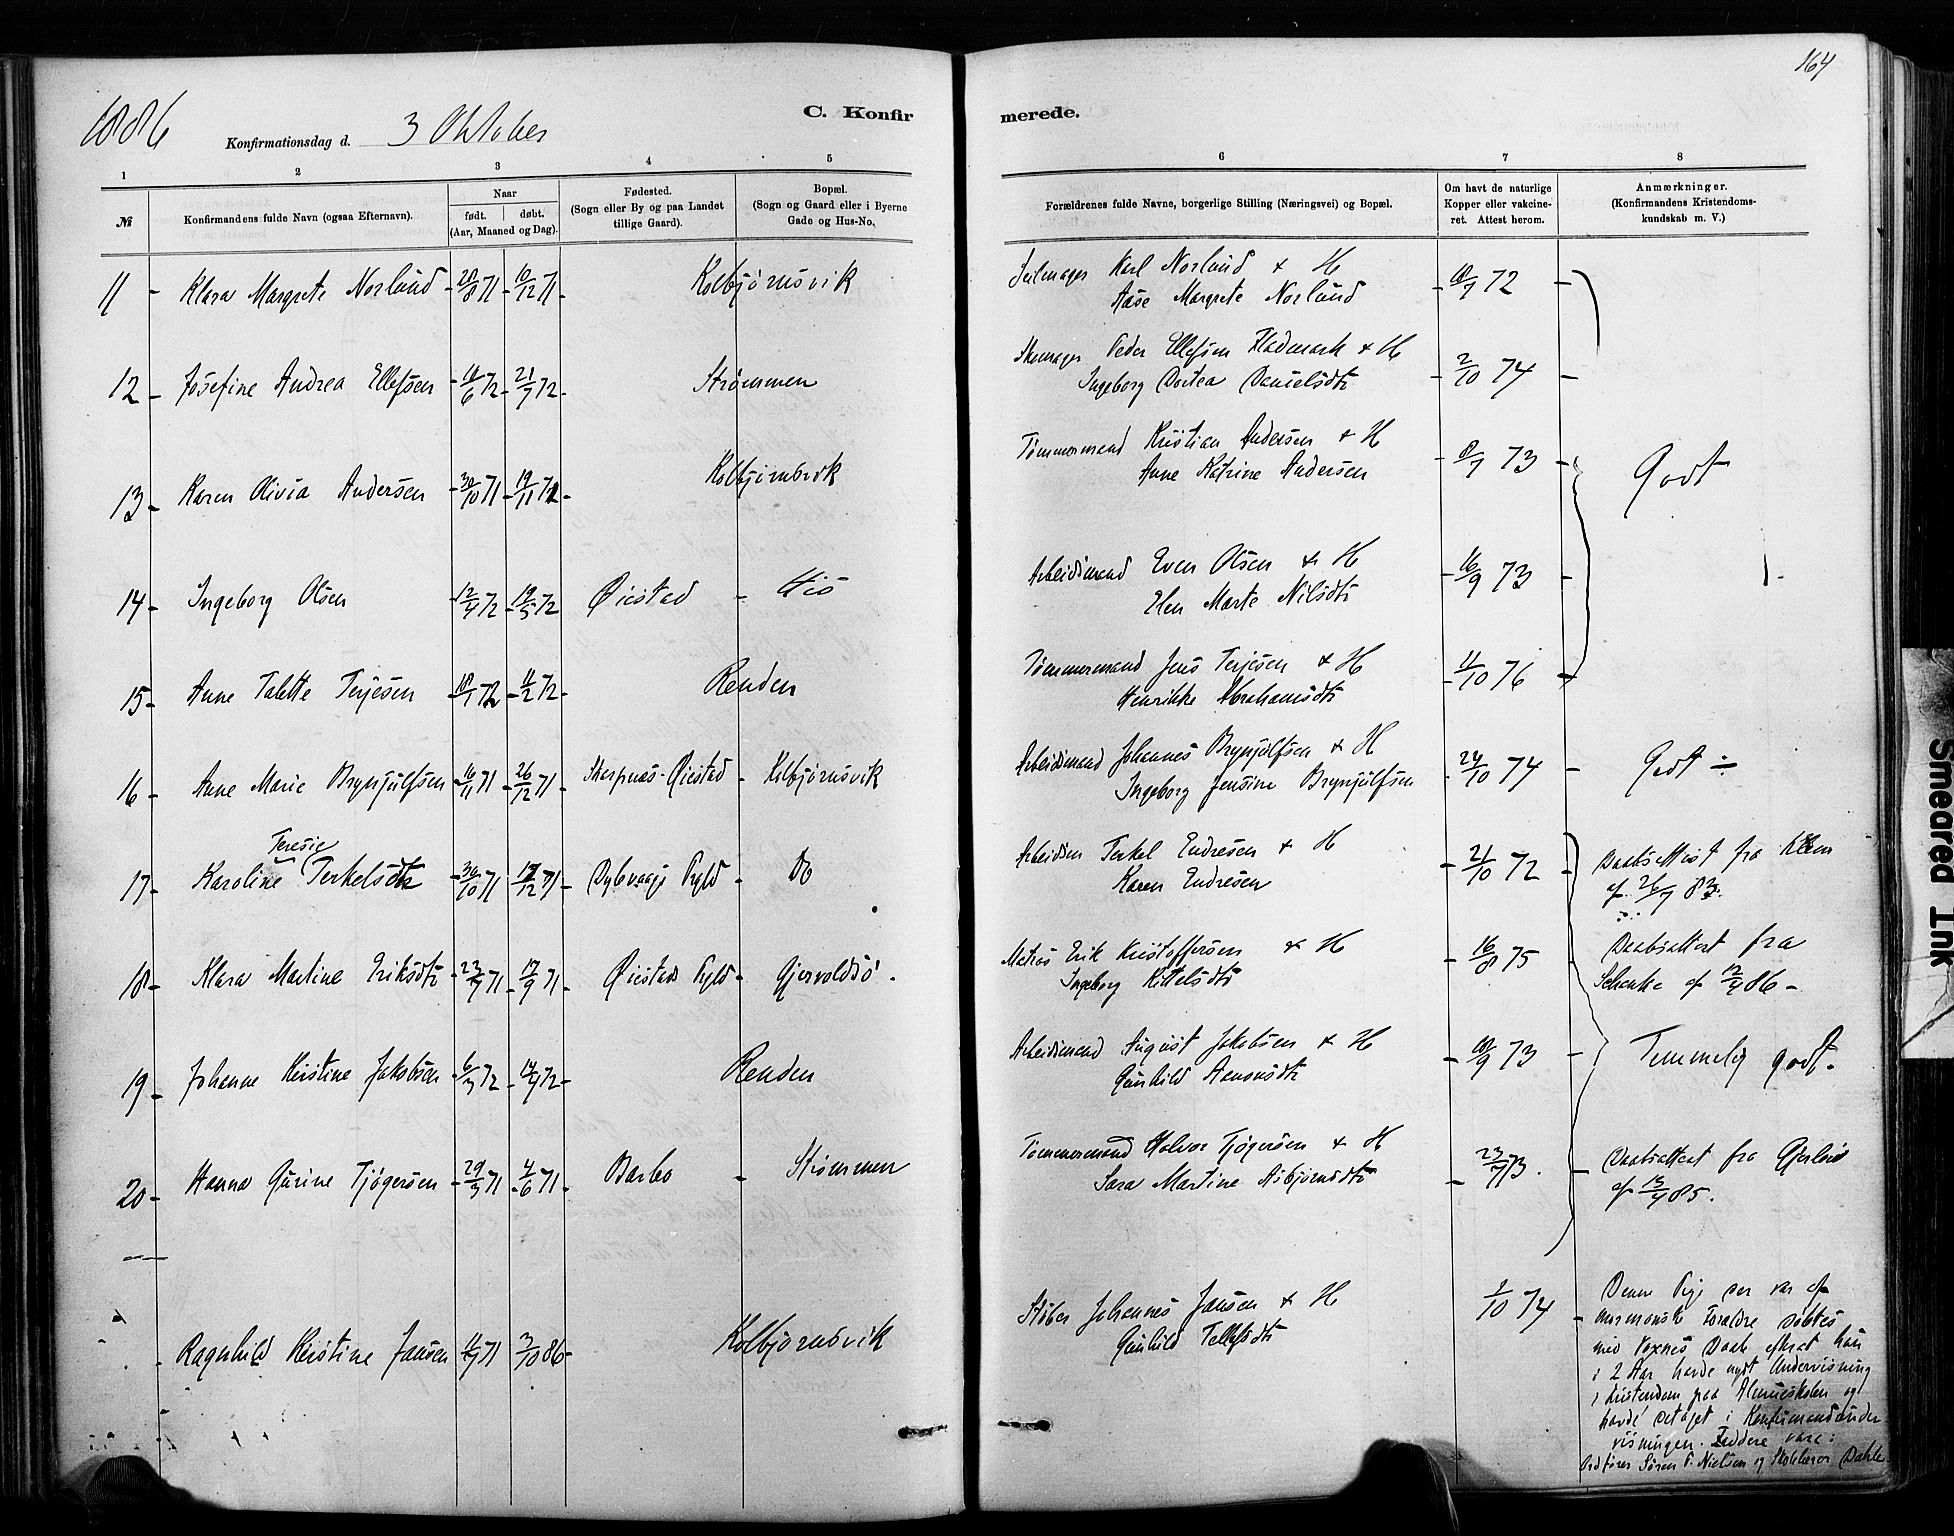 164
1886 Konfirmationsdag d. 3 Oktober
C. Konfirmerede.
1 2 3 4 5 6 7 8
№
Konfirmandens fulde Navn (ogsaa Efternavn).
Naar
født. døbt.
(Aar, Maaned og Dag).
Fødested.
(Sogn eller By og paa Landet
tillige Gaard).
Bopæl.
(Sogn og Gaard eller i Byerne
Gade og Hus-No.
Forældrenes fulde Navne, borgerlige Stilling (Næringsvei) og Bopæl.
Om havt de naturlige
Kopper eller vakcine-
ret. Attest herom.
Anmærkninger.
(Konfirmandens Kristendoms-
kundskab m. V.)
11 - Klara Margrete Norlund - 28/8 71 - 10/12 71 - Kolbjørnsvik
Seilmager Karl Norlund & H
Aase Margrete Norlund - 10/7 72 -
12 - Josefine Andrea Ellefsen - 11/6 72 - 21/7 72 - Strømmen
Skomager Peder Ellefsen Flademark & H
Ingeborg Dortea Danielsdtr - 2/10 74 -
13 - Karen Olivia Andersen - 30/10 71 - 19/11 71 - Kolbjørnsvik
Tømmermand Kristian Andersen & H
Anne Katrine Andersen - 8/7 73 - Godt
14 - Ingeborg Olsen - 12/4 72 - 19/5 72 Øiestad - His
Arbeidsmand Even Olsen & H
Elen Marte Nilsdtr - 16/9 73 -
15 - Anne Talette Terjesen - 18/1 72 - 11/2 72 - Renden
Tømmermand Jens Terjesen & H
Henrikke Abrahamsdtr - 11/10 76 -
16 - Anne Marie Brynjulfsen - 16/11 71 - 26/12 71 - Skarpnæs-Øiestad - Kolbjørnsvik
Arbeidsmand Johannes Brynjulfsen & H
Ingeborg Jensine Brynjulfsen - 24/10 74 - Godt ÷
Teresie
17 - Karoline Terkelsdtr - 30/10 71 - 17/12 71 - Dybvaag Pgld - Do
Arbeidsm Terkel Endresen & H
Karen Endresen - 21/10 72 - Daabsattest fra
af 26/7 83.
18 - Klara Martine Eriksdtr - 23/7 71 - 17/9 71 - Øiestad Pgld - Gjervoldsø -
Matros Erik Kristoffersen & H
Ingeborg Kittelsdtr - 16/8 75 - Daabsattest fra
Schenke af 12/4 86 -
19 - Johanne Kristine Jakobsen - 6/3 72 - 14/4 72 - Renden
Arbeidsmand August Jakobsen & H
Gunhild Aanonsdtr - 10/9 73 - Temmelig godt.
20 - Hanna Gurine Tjøgersen - 29/3 71 - 4/6 71 - Barbo - Strømmen
Tømmermand Halvor Tjøgersen & H
Sara Martine Asbjørnsdtr - 23/7 73. - Daabsattest fra
af 13/4 85.
- Ragnhild Kristine Jansen 11/7 71 3/10 86 - Kolbjørnsvik
Støber Johannes Jansen & H
Gunhild Tellefsdtr 2/10 74 - Denne Pige der var af
mormonske Foreldre døbtes
med Voxnes Daab efterat hun
i 2 Aar havde nydt Undervisning
i Kristendom paa Almueskolen og
havde deltaget i Konfirmandunder
visningen. Faddere vare:
Ordfører Søren P. Nielsen og Skolelærer Dahle
Smeared Ink